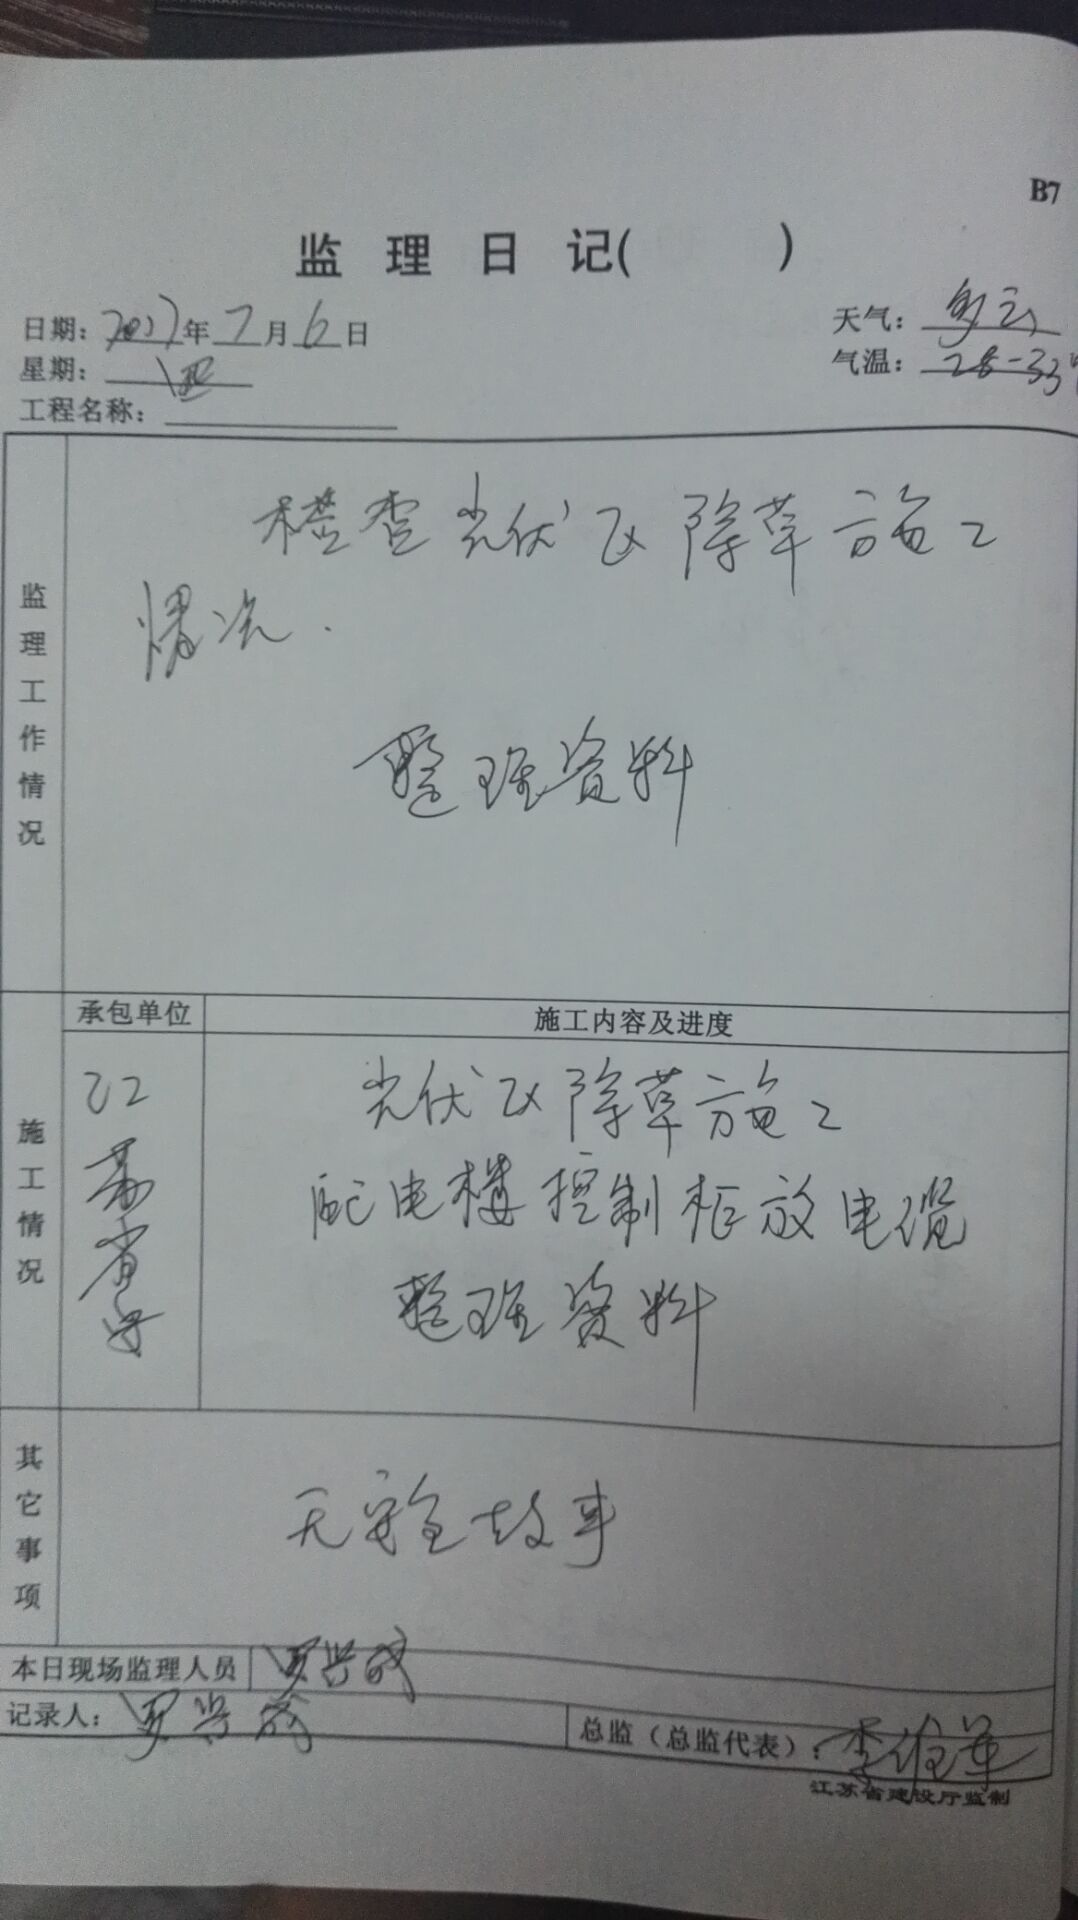 B7
监理日记( )
日期:2017年7月6日
天气:多云
星期:四
气温:28-33℃
工程名称:
监理工作情况
检查光伏区除草施工
情况.
整理资料
承包单位
施工内容及进度
施工情况
江
苏
省
安
光伏区除草施工
配电楼控制柜放电缆
整理资料
其它事项
无安全故事
本日现场监理人员 罗兴成
记录人: 罗兴成
总监(总监代表): 李维革
江苏省建设厅监制